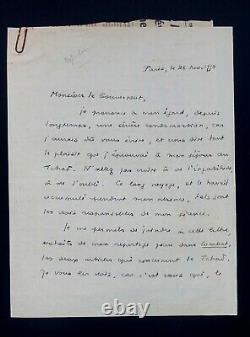 Paris, le 26
Monsieur le Gouverneur,
Je prononce à mon égard, depuis
longtemps, une sévère condamnation, car
j'aurais dû vous écrire, et vous dire tout
le plaisir que j'ai éprouvé à mon séjour au
Tchad. N'allez pas croire à de l'impolitesse
à de l'oubli. Ce long voyage, et le travail
accumulé pendant mon absence, sont
les seuls responsables de mon silence.
Je me permets de joindre à cette lettre,
extraits de mon reportage paru dans Combat,
les deux articles qui concernent le Tchad.
Je vous les dois, car c'est vous qui, le